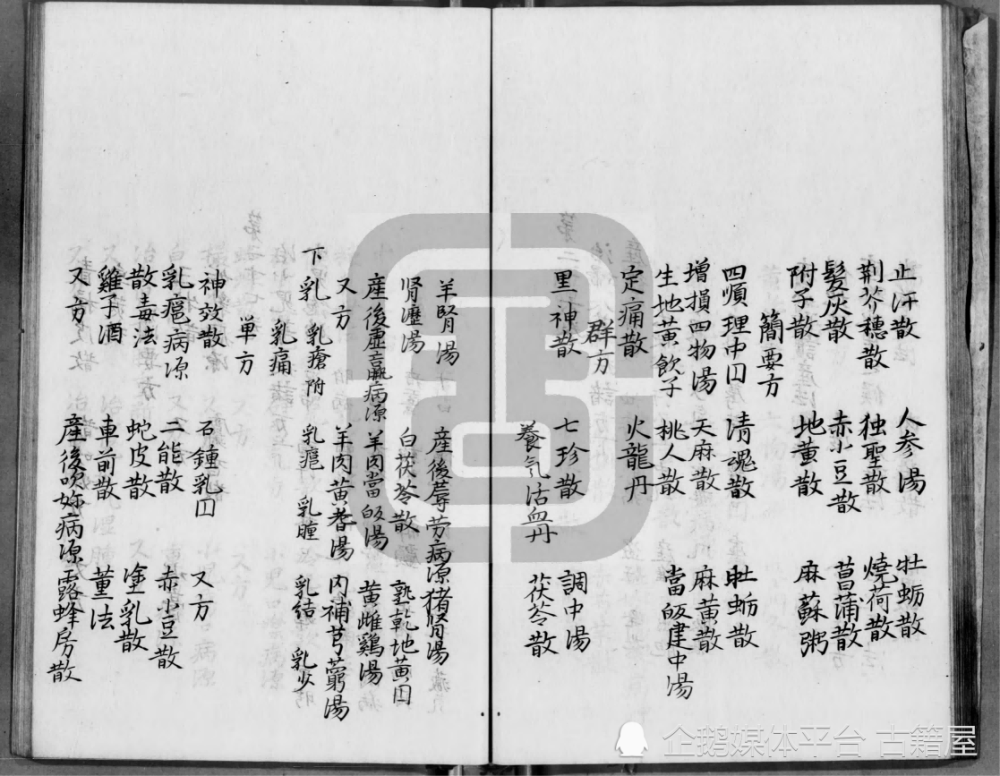 止汗散 人参湯 牡蛎散
荆芥穗散 独聖散 燒荷散
髮灰散 赤小豆散 菖蒲散
附子散 地黄散 麻蘇粥
簡要方
四順理中円 清魂散 牡蛎散
增損四物湯 天麻散 麻黄散
生地黄飲子 桃人散 當皈建中湯
定痛散 火龍丹
群方
黑神散 七珍散 調中湯
養氣活血丹 茯苓散
羊腎湯 産後蓐劳病源 猪腎湯
腎瀝湯 白茯苓散 熟乾地黄円
産後虚羸病源 羊肉當皈湯 黄雌鷄湯
又方 羊肉黄耆湯 内補芎藭湯
下乳 乳瘡附 乳癰 乳腫 乳結 乳少
乳痛
単方
神效散 石鍾乳円 又方
乳癰病源 二能散 赤小豆散
散毒法 蛇皮散 塗乳散
雞子酒 車前散 薫法
又方 産後吹妳病源 露蜂房散
企鹅媒体平台 古籍屋